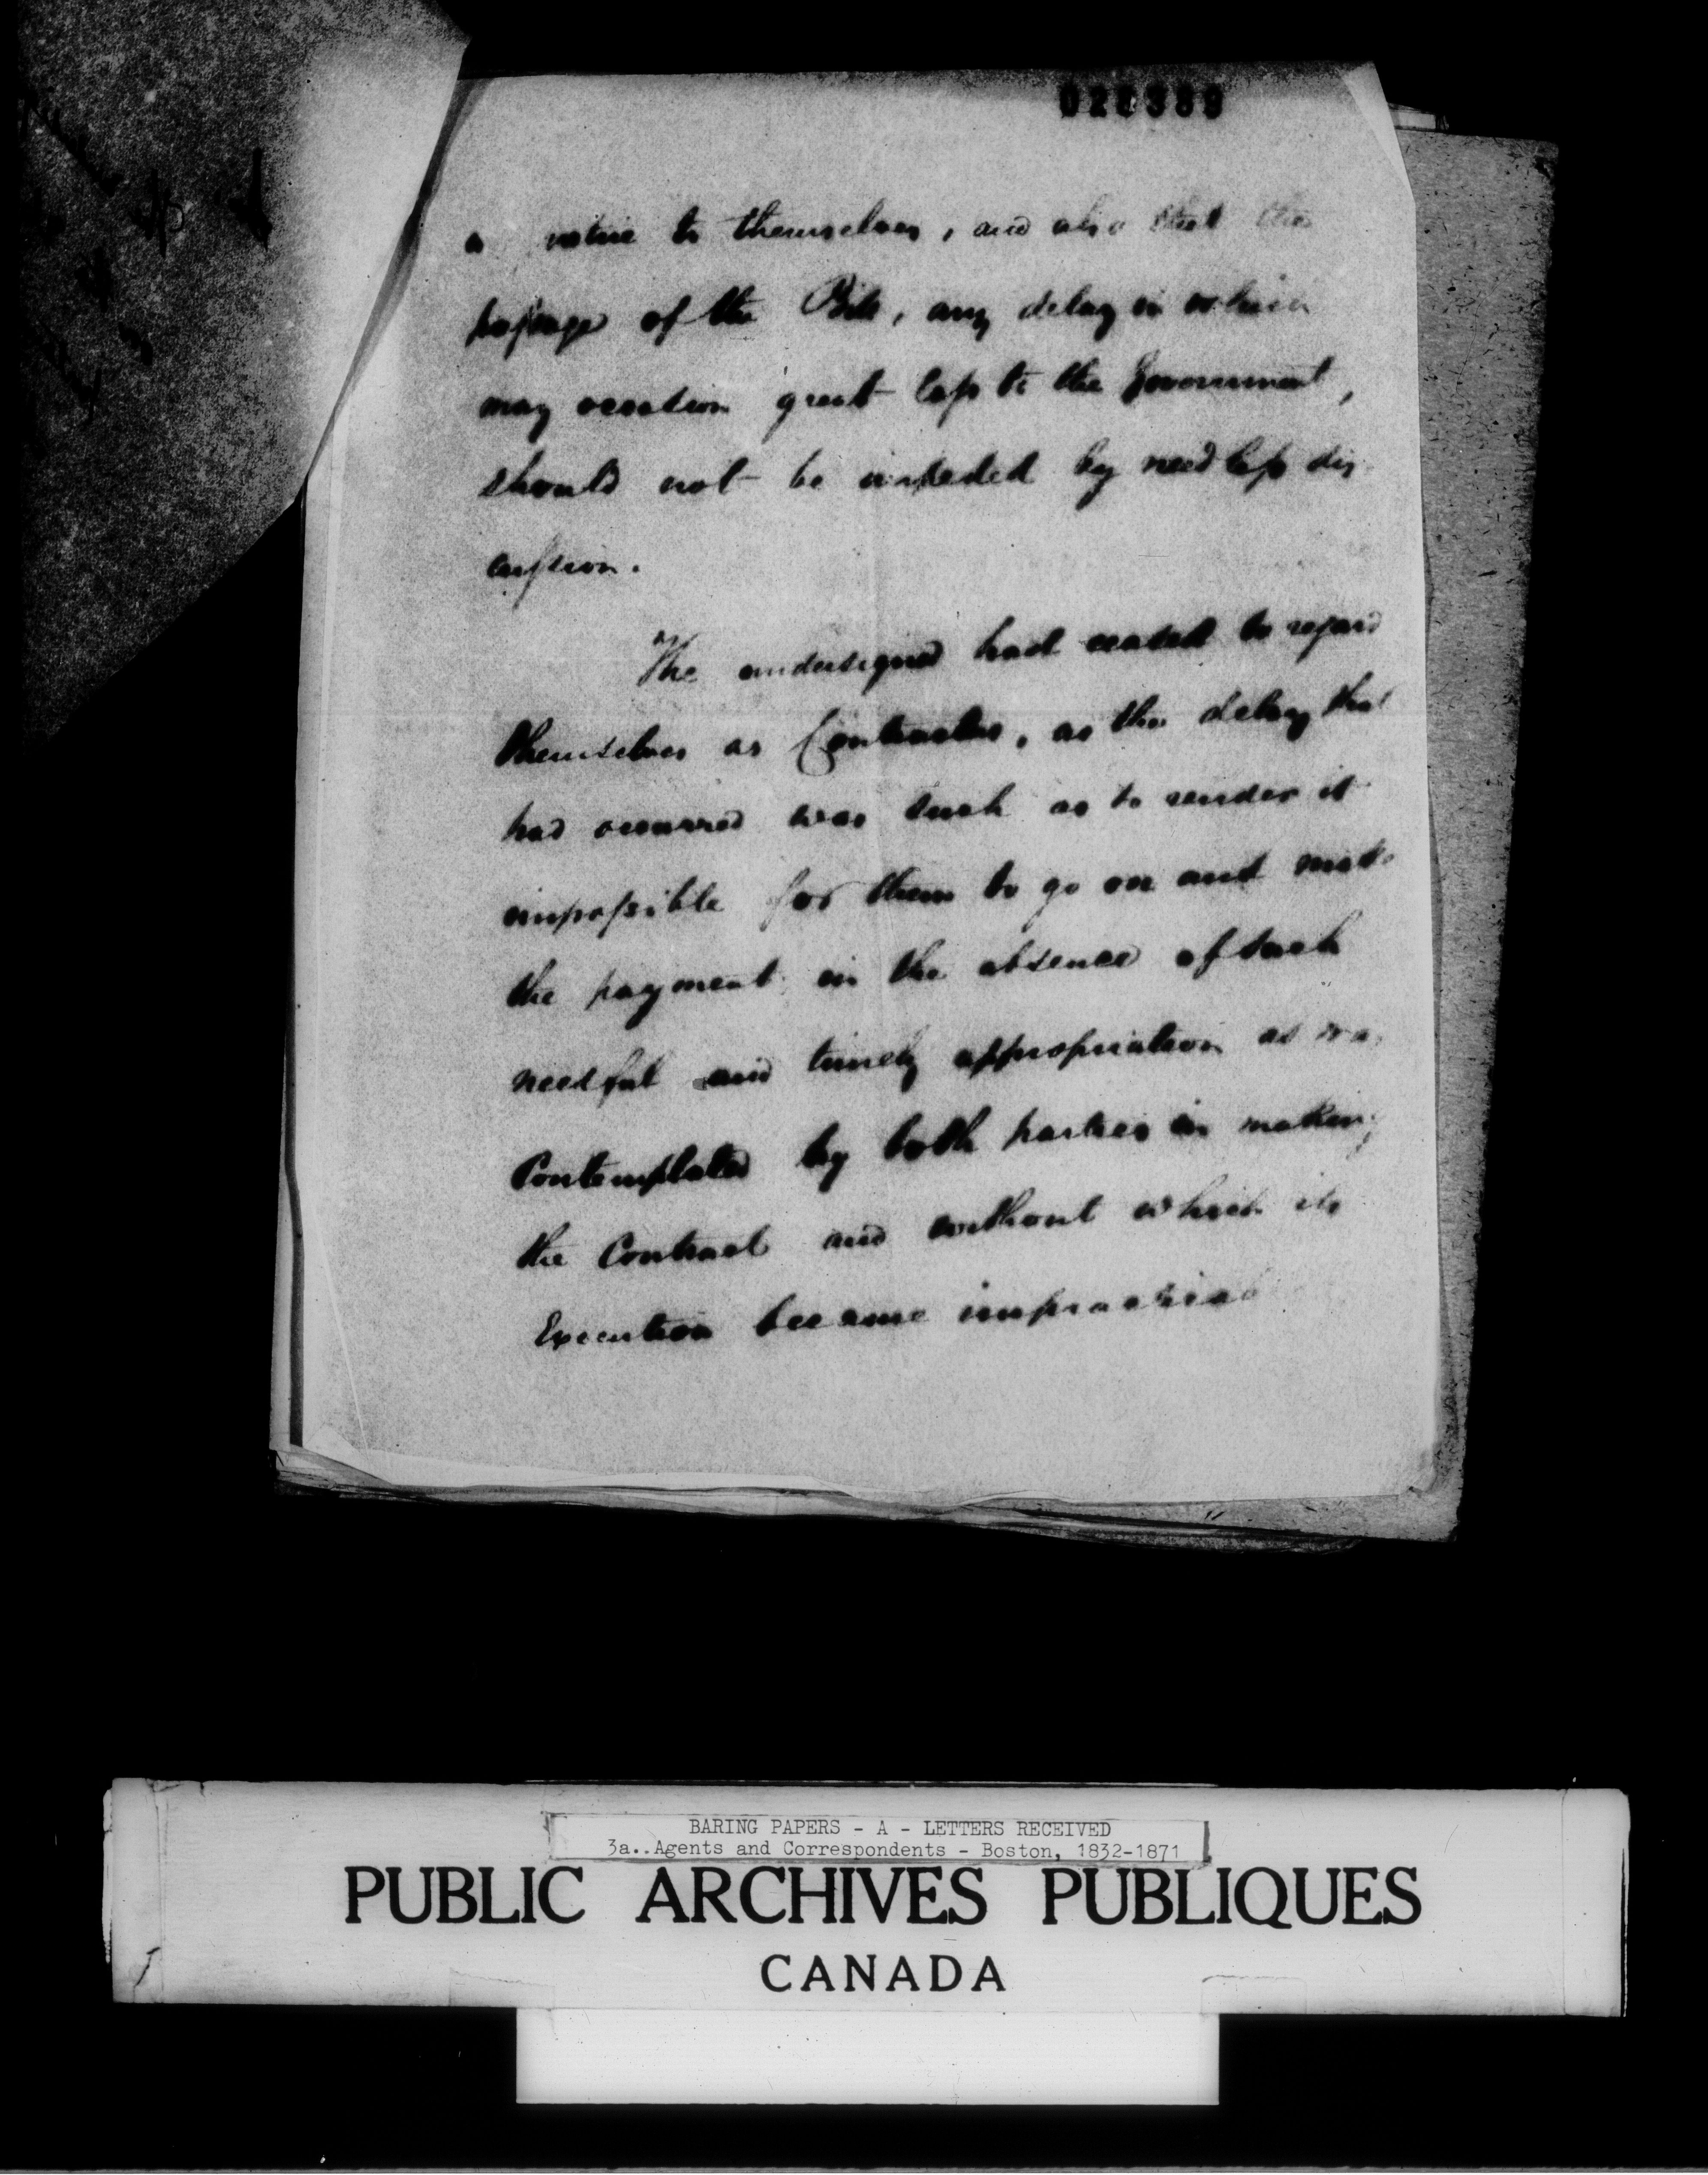 028389
a notice to themselves, and also that the
passage of the Bill, any delay in which
may occasion great loss to the Government,
should not be impeded by needless dis
cussion.
The undersigned had ceased to regard
themselves as Contractors, as the delay that
had occurred was such as to render it
impossible for them to go on and make
the payment in the absence of such
needful and timely appropriation as was
Contemplated by both parties in making
the Contract and without which its
Execution became
BARING PAPERS - A - LETTERS RECEIVED
3a..Agents and Correspondents - Boston, 1832-1871
PUBLIC ARCHIVES PUBLIQUES
CANADA